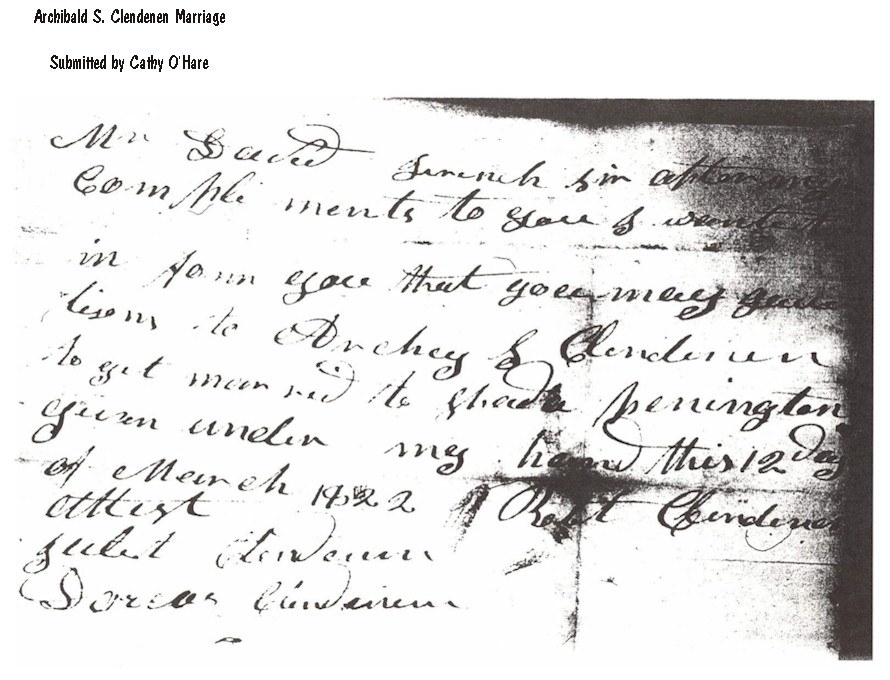 Archibald S. Clendenen Marriage
Submitted by Cathy O'Hare
Mr David French sir after my
Compli ments to you I want to
in form you that you may give
lisons to Archey S Clendenen
to git married to penington
given under my hand this 12 day
of March 1822 Robt Clendenen
Attest
Clendenen
Dorcas Clendenen